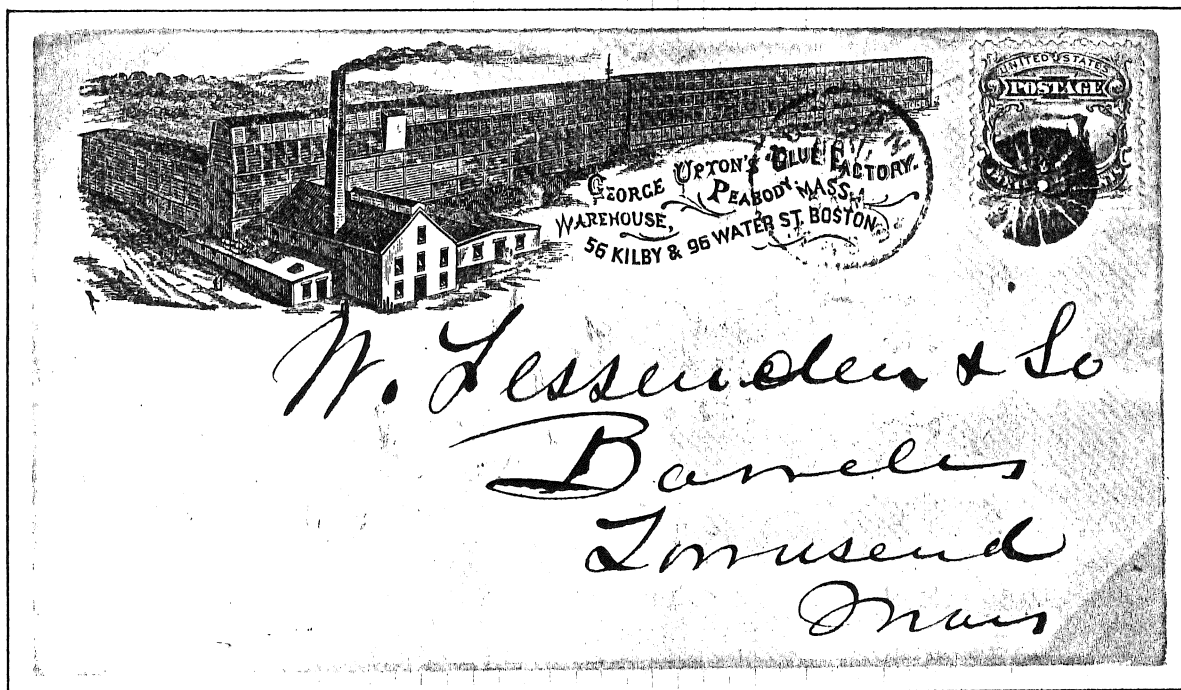 UNITED STATES
POSTAGE
GEORGE UPTON'S GLUE FACTORY.
PEABODY MASS.
WAREHOUSE,
56 KILBY & 96 WATER ST. BOSTON.
W. Fessenden & Co
Barrelers
Townsend
Mass